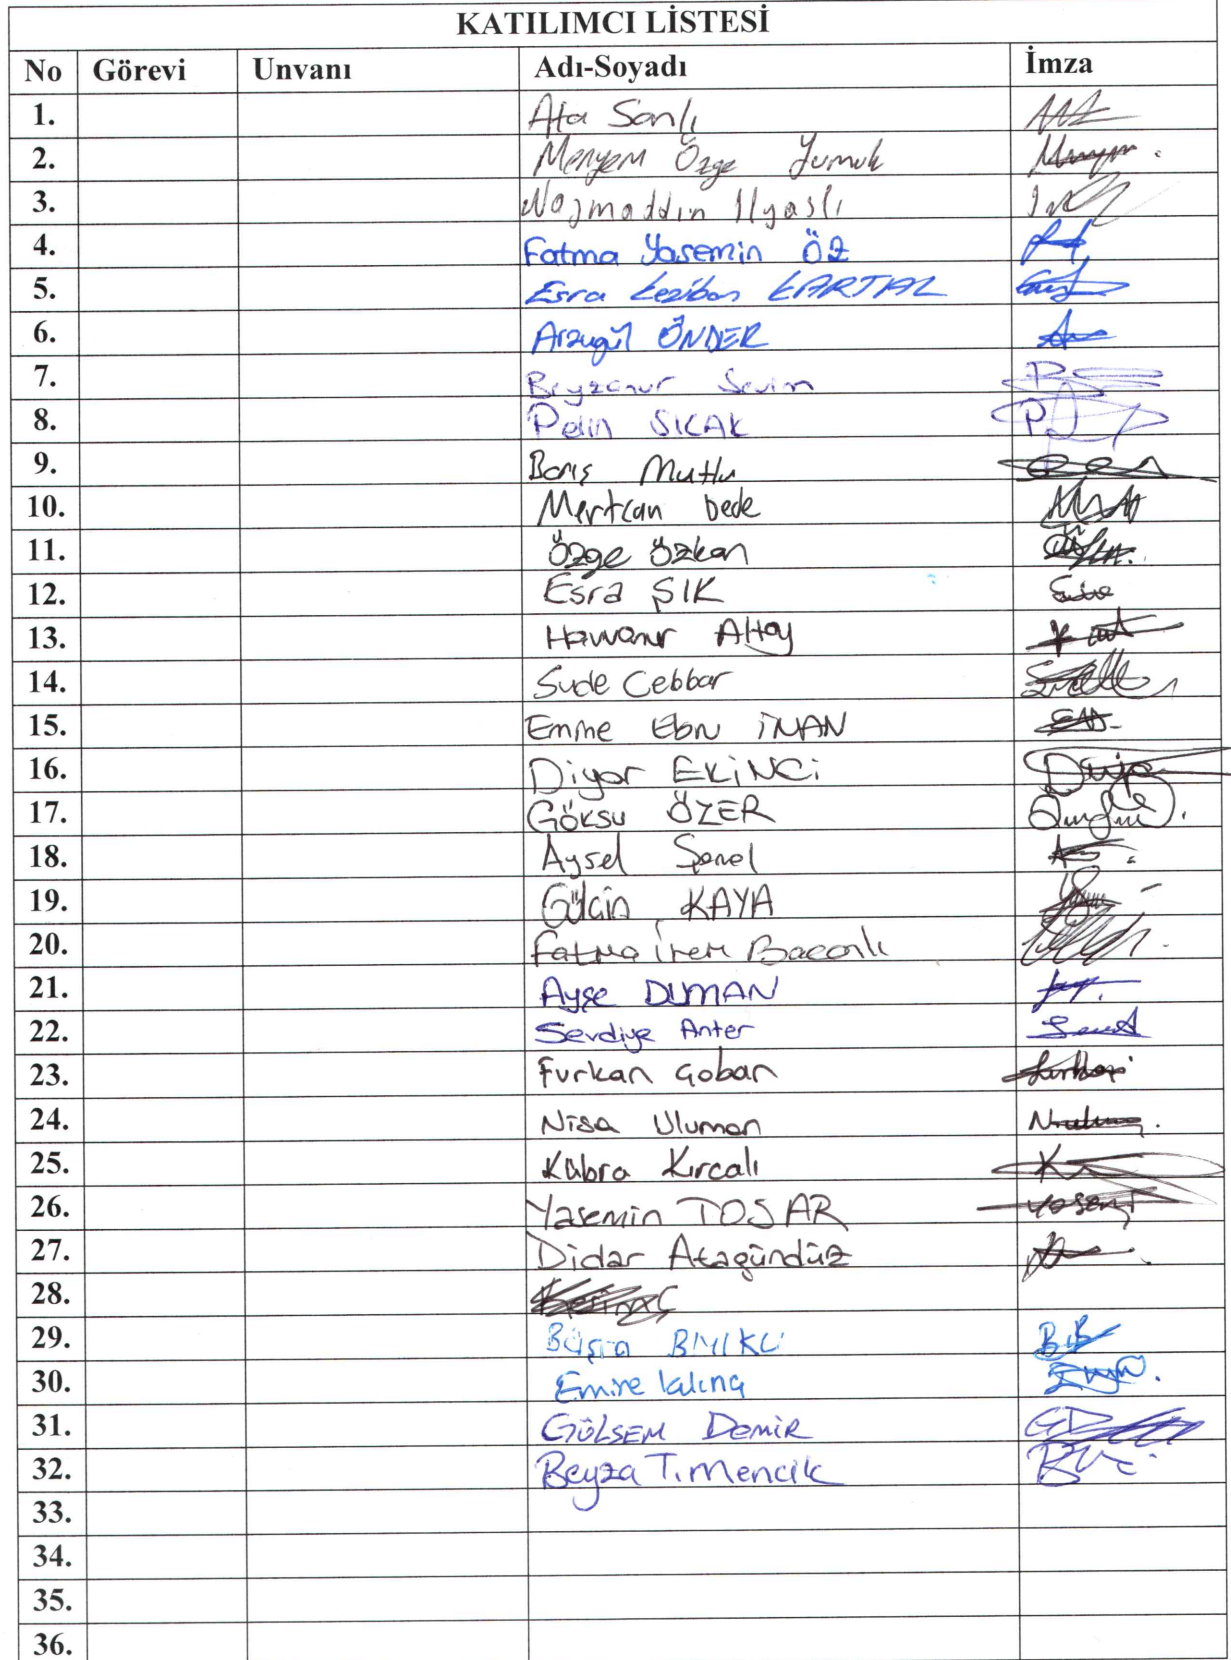 KATILIMCI LİSTESİ
No Görevi Unvanı Adı-Soyadı İmza
1. Ata Sanlı
2. Meryem Özge Yumuk
3. Najmaddin Ilyaslı
4. Fatma Yasemin ÖZ
5. Esra Keziban KARTAL
6. Arzugül ÖNDER
7. Beyzanur Sevim
8. Pelin SICAK
9. Barış Mutlu
10. Mertcan Dede
11. Özge Özkan
12. Esra ŞIK
13. Havvanur Altay
14. Sude Cebbar
15. Emine Ebru İNAN
16. Diyar EKİNCİ
17. Göksu ÖZER
18. Aysel Şenel
19. Gülçin KAYA
20. Fatma İrem
21. Ayşe DUMAN
22. Sevdiye Anter
23. Furkan Çoban
24. Nisa Uluman
25. Kübra Kırcalı
26. Yasemin TOSAR
27. Didar Atagündüz
28.
29. Büşra BIYIKLI
30. Emine
31. GÜLSEM DEMİR
32. Beyza Timencik
33.
34.
35.
36.